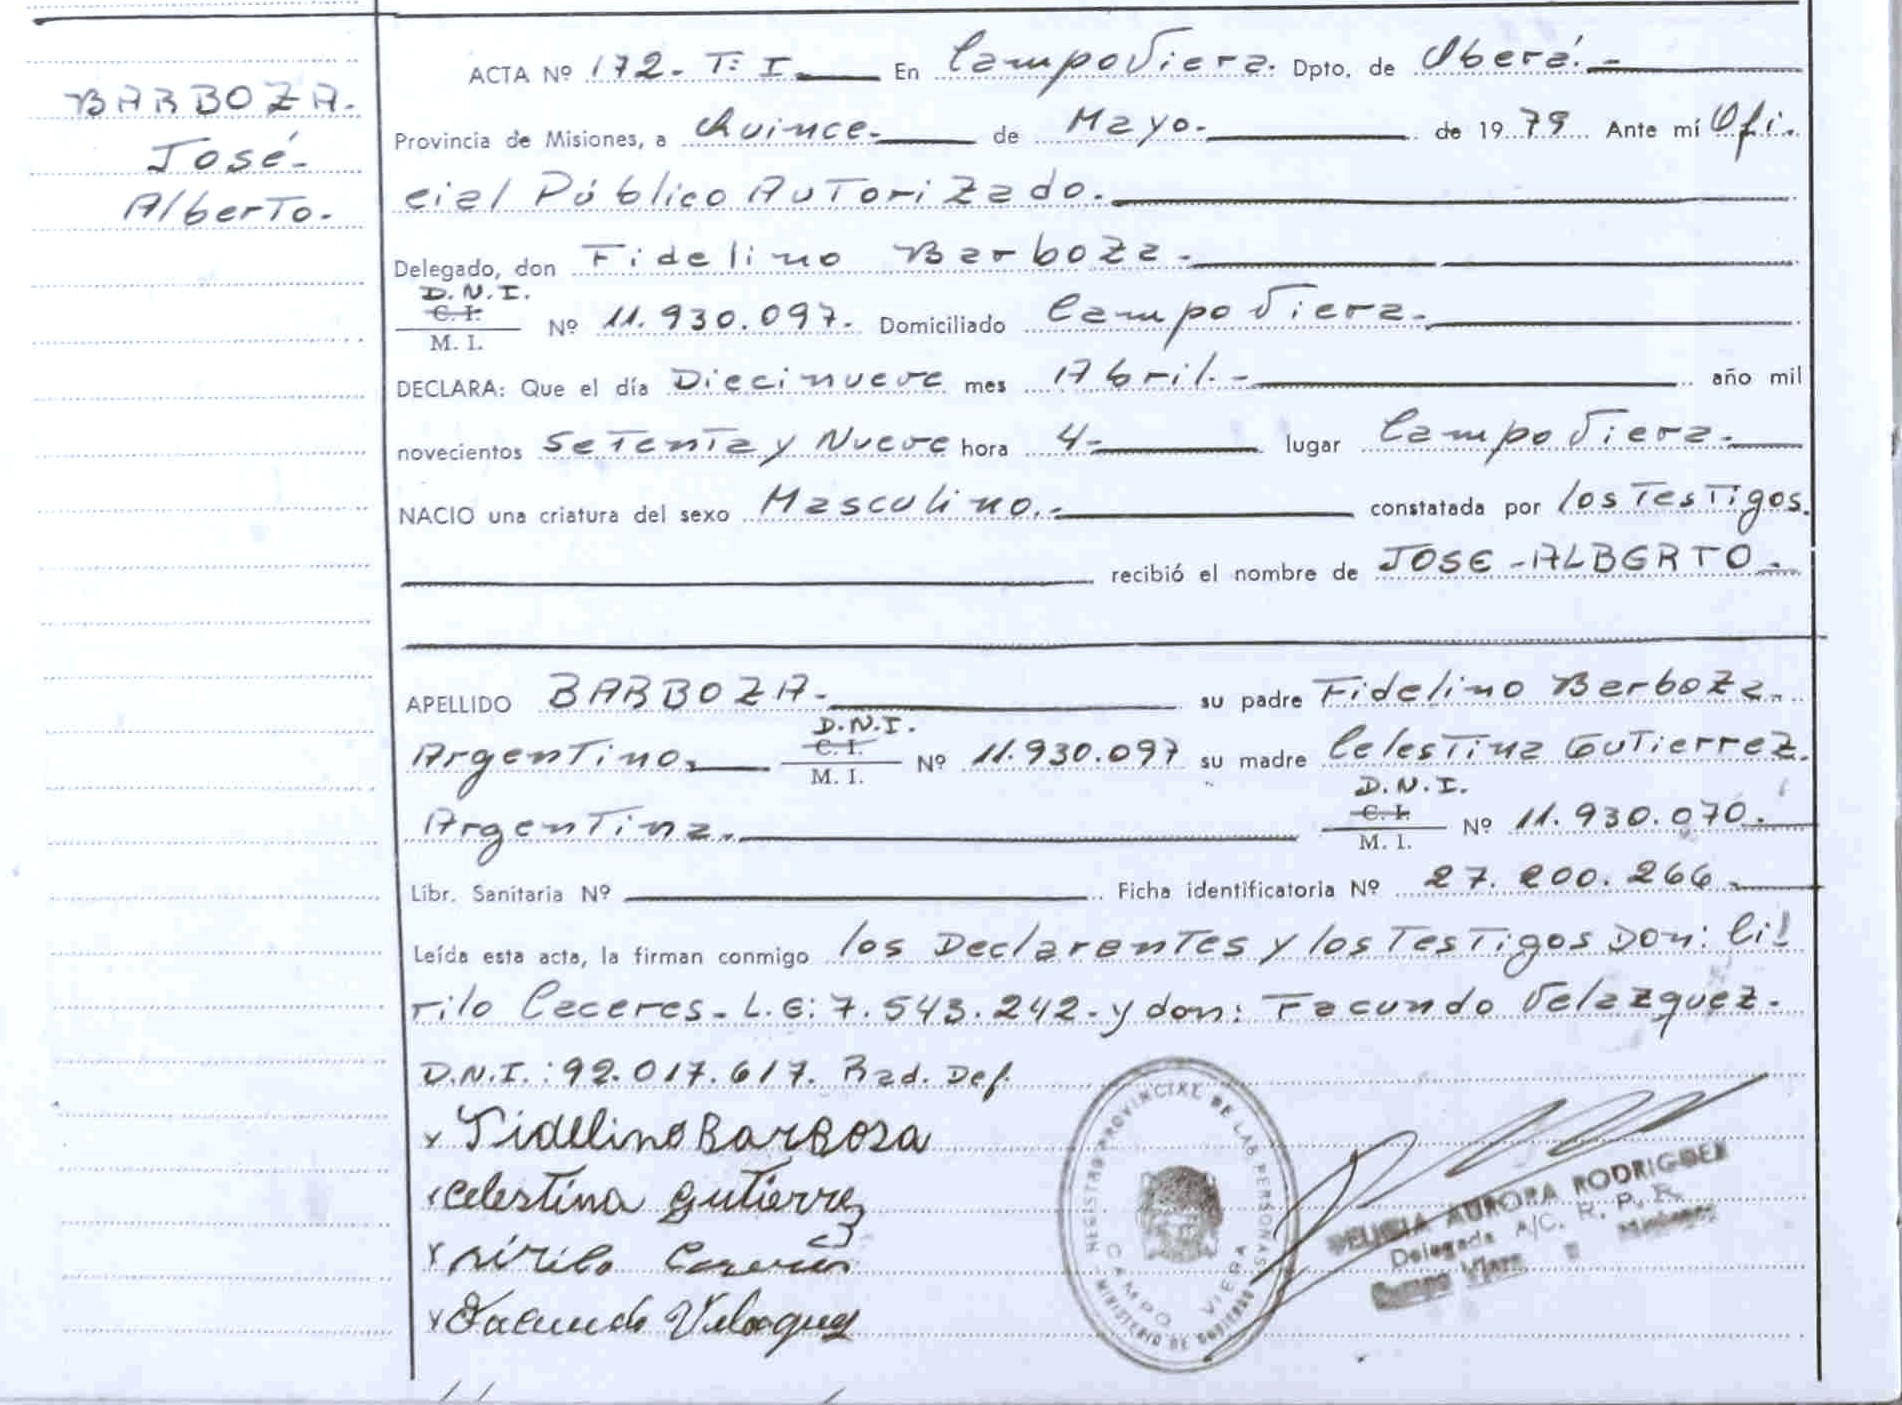 BARBOZA.
José-
Alberto.
ACTA Nº 172- Tº I. En Campo Viera. Dpto. de Oberá.-
Provincia de Misiones, a Quince- de Mayo- de 1979 Ante mí Ofi.
cial Público Autorizado.
Delegado, don Fidelino Barboza.-
D.N.I.
C. I.
M. I. Nº 11.930.097. Domiciliado Campo Viera.-
DECLARA: Que el día Diecinueve mes Abril.- año mil
novecientos Setenta y Nueve hora 4- lugar Campo Viera.-
NACIO una criatura del sexo Masculino.- constatada por los Testigos.
recibió el nombre de JOSE-ALBERTO.-
APELLIDO BARBOZA- su padre Fidelino Barboza.
D.N.I.
C. I.
Argentino. M. I. Nº 11.930.097 su madre Celestina Gutierrez.
D.N.I.
C. I.
Argentina. M. I. Nº 11.930.070.
Libr. Sanitaria Nº Ficha identificatoria Nº 27.200.266-
Leída esta acta, la firman conmigo los Declarantes y los Testigos Don: Ci!
rilo Caceres- L.E: 7.543.242- y don: Facundo Velazquez-
D.N.I.: 92.017.617. Rad. Def.
x Fidelino Barboza
x Celestina Gutierrez
x sirilo Caceres
x Facundo Velasquez
REGISTRO PROVINCIAL DE LAS PERSONAS
CAMPO VIERA
MINISTERIO DE GOBIERNO
DELICIA AURORA RODRIGUEZ
Delegada A/C. R. P. P.
Campo Viera Misiones